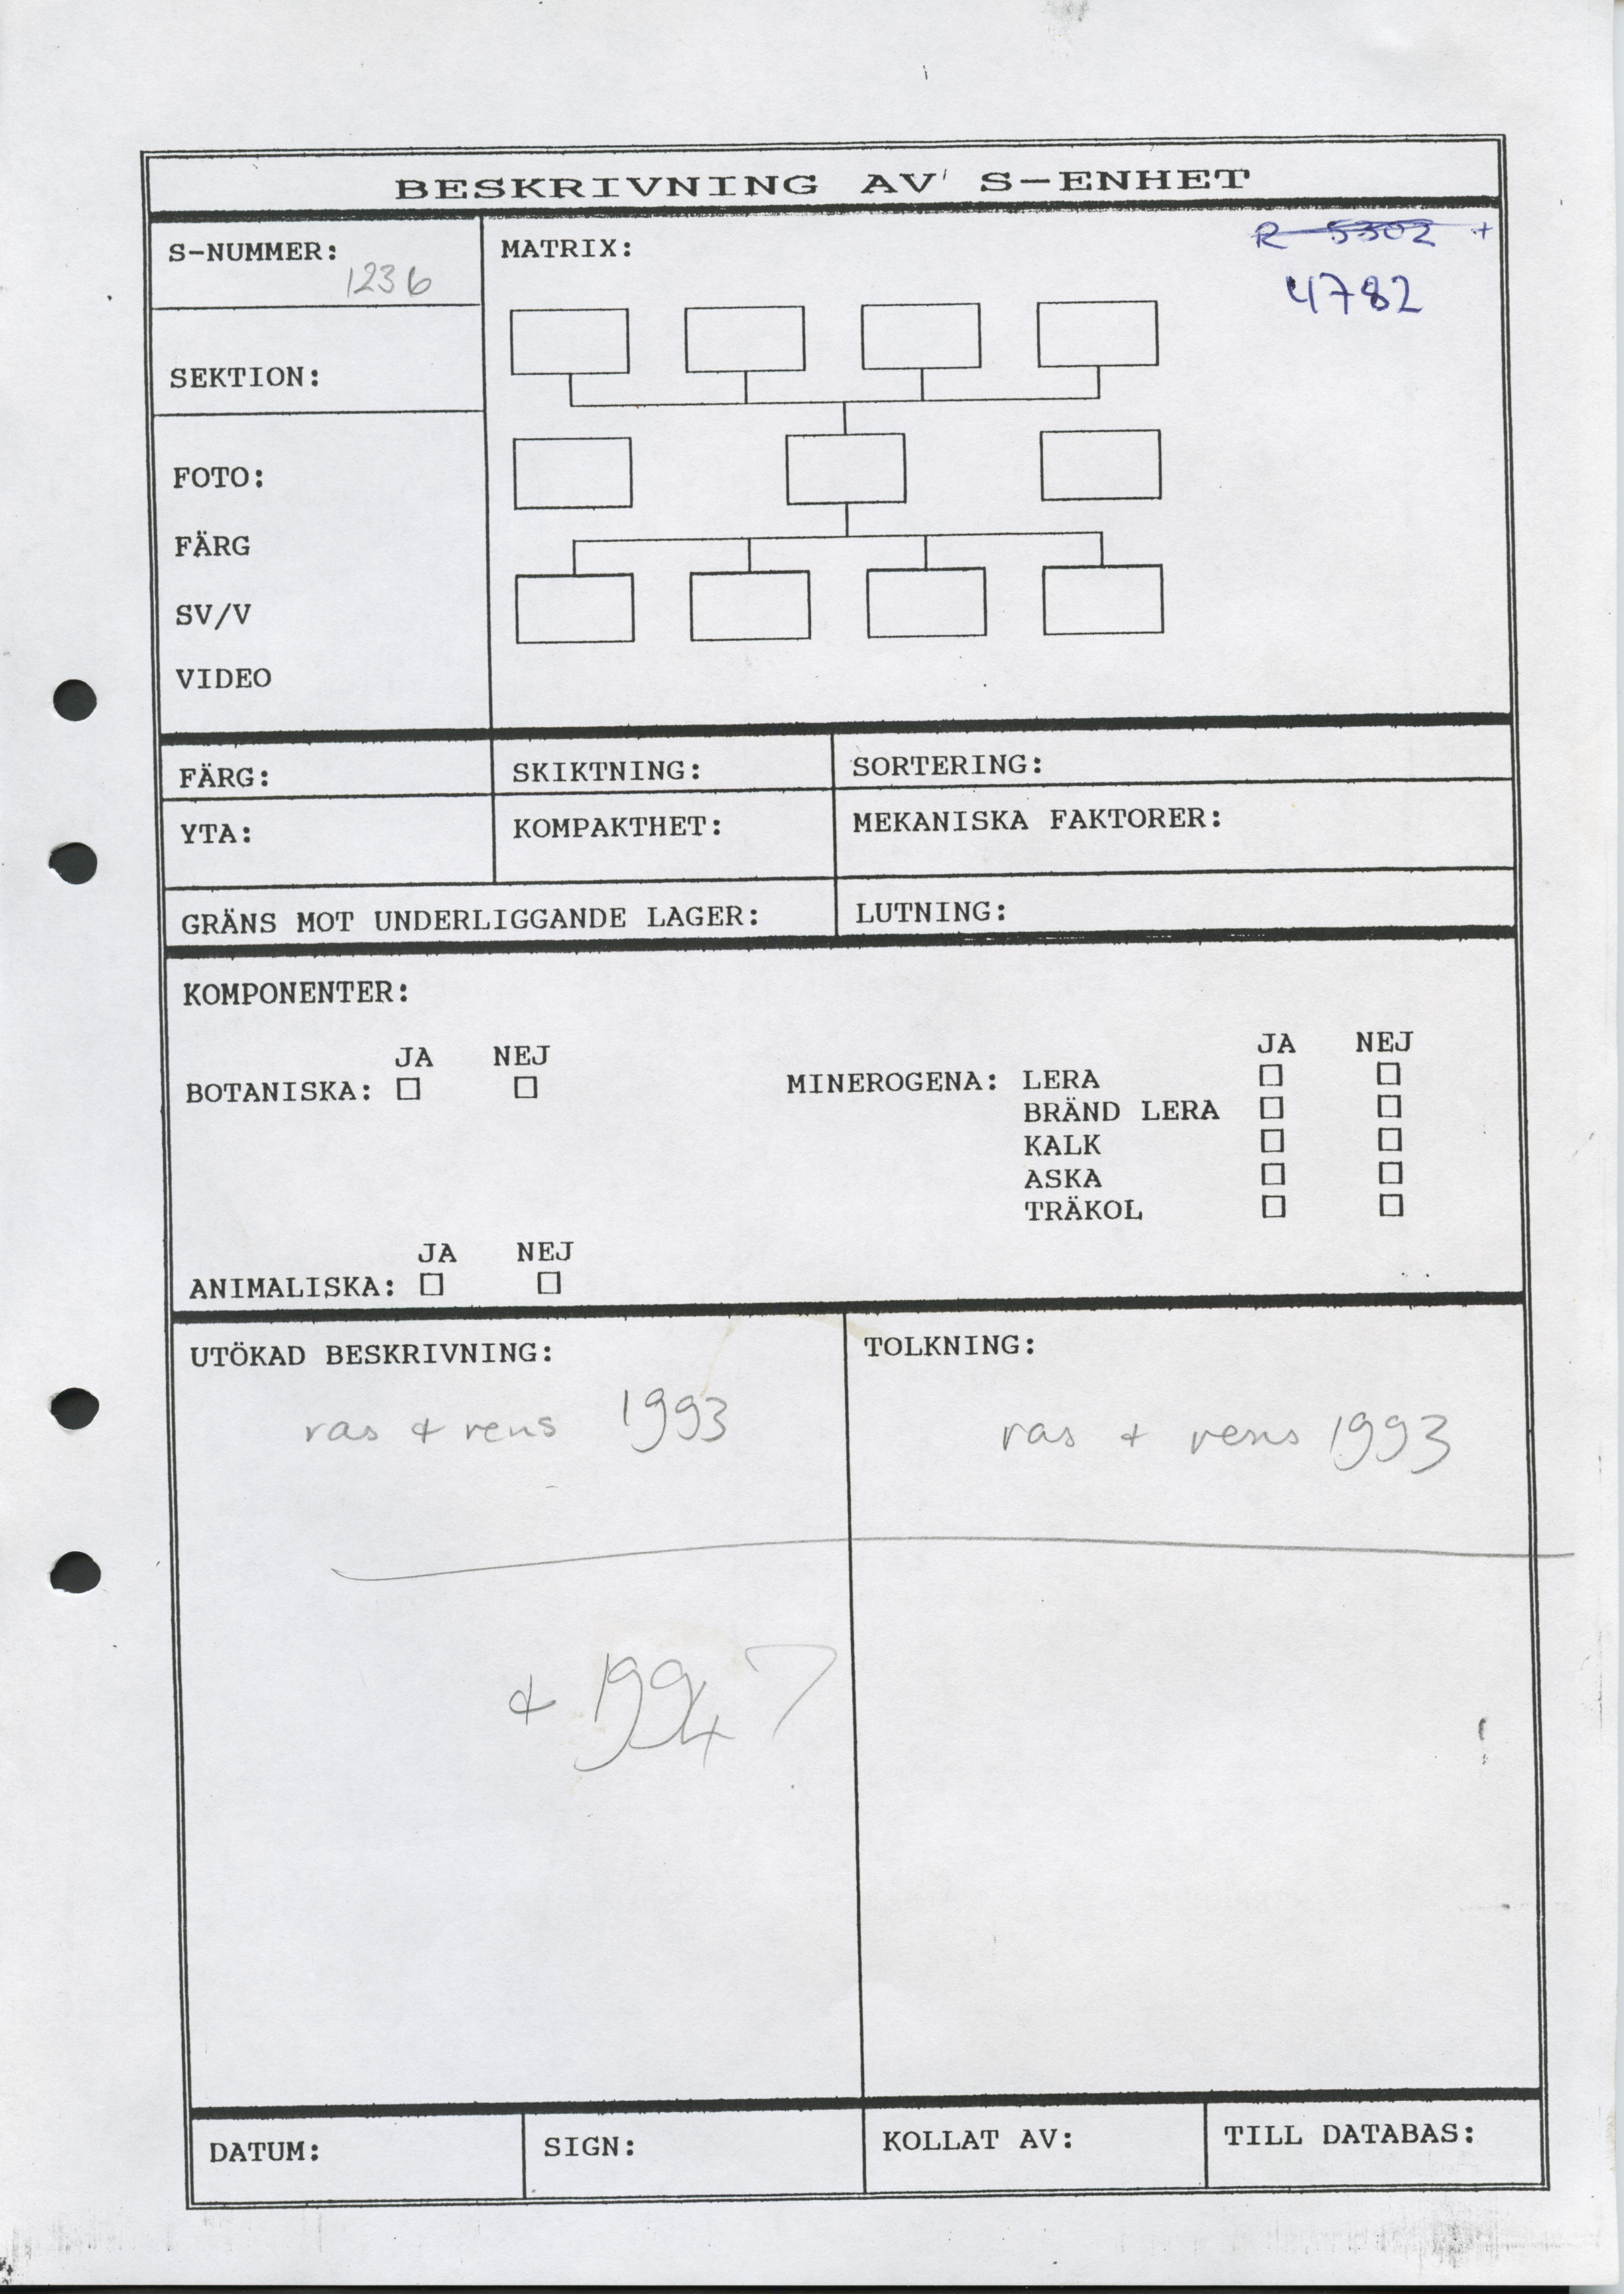 BESKRIVNING AV S-ENHET
S-NUMMER:
1236
MATRIX:
R 5302 +
4782
SEKTION:
FOTO:
FÄRG
SV/V
VIDEO
FÄRG:
SKIKTNING:
SORTERING:
YTA:
KOMPAKTHET:
MEKANISKA FAKTORER:
GRÄNS MOT UNDERLIGGANDE LAGER:
LUTNING:
KOMPONENTER:
JA NEJ
BOTANISKA:
JA NEJ
MINEROGENA: LERA
BRÄND LERA
KALK
ASKA
TRÄKOL
JA NEJ
ANIMALISKA:
UTÖKAD BESKRIVNING:
ras + rens 1993
+ 1994 7
TOLKNING:
ras + rens 1993
DATUM:
SIGN:
KOLLAT AV:
TILL DATABAS: